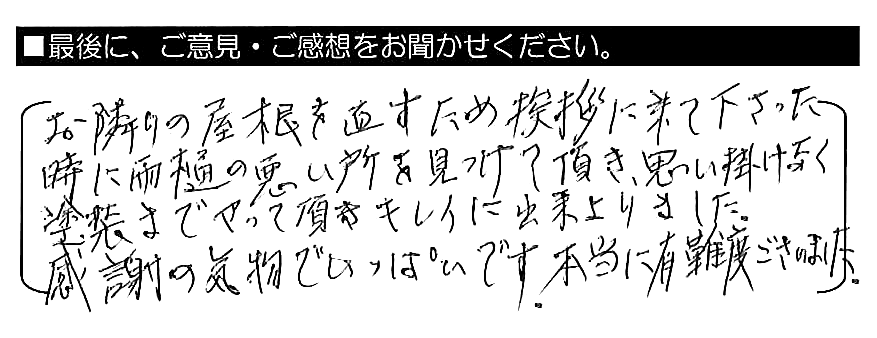 ■最後に、ご意見・ご感想をお聞かせください。
お隣りの屋根を直すため挨拶に来て下さった
時に雨樋の悪い所を見つけて頂き、思い掛けなく
塗装までやって頂きキレイに出来上りました。
感謝の気物でいっぱいです。本当に有難度ございました。